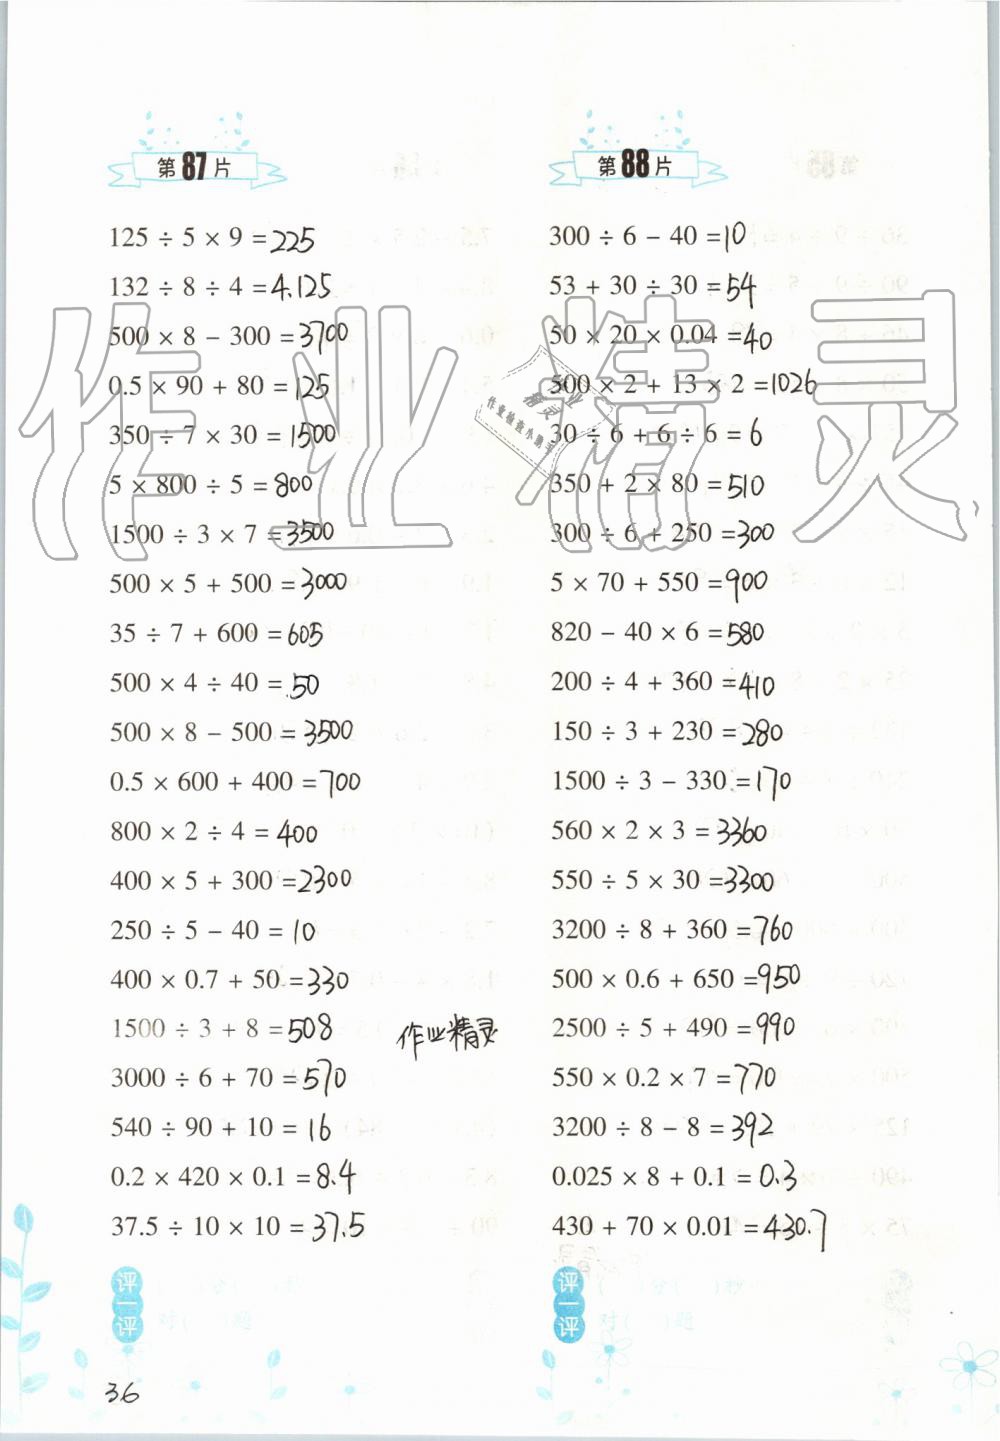 第87片
125 ÷ 5 × 9 = 225
132 ÷ 8 ÷ 4 = 4.125
500 × 8 − 300 = 3700
0.5 × 90 + 80 = 125
350 ÷ 7 × 30 = 1500
5 × 800 ÷ 5 = 800
1500 ÷ 3 × 7 = 3500
500 × 5 + 500 = 3000
35 ÷ 7 + 600 = 605
500 × 4 ÷ 40 = 50
500 × 8 − 500 = 3500
0.5 × 600 + 400 = 700
800 × 2 ÷ 4 = 400
400 × 5 + 300 = 2300
250 ÷ 5 − 40 = 10
400 × 0.7 + 50 = 330
1500 ÷ 3 + 8 = 508
3000 ÷ 6 + 70 = 570
540 ÷ 90 + 10 = 16
0.2 × 420 × 0.1 = 8.4
37.5 ÷ 10 × 10 = 37.5
评一评
( )分( )秒
对( )题
36
作业精灵
第88片
300 ÷ 6 − 40 = 10
53 + 30 ÷ 30 = 54
50 × 20 × 0.04 = 40
500 × 2 + 13 × 2 = 1026
30 ÷ 6 + 6 ÷ 6 = 6
350 + 2 × 80 = 510
300 ÷ 6 + 250 = 300
5 × 70 + 550 = 900
820 − 40 × 6 = 580
200 ÷ 4 + 360 = 410
150 ÷ 3 + 230 = 280
1500 ÷ 3 − 330 = 170
560 × 2 × 3 = 3360
550 ÷ 5 × 30 = 3300
3200 ÷ 8 + 360 = 760
500 × 0.6 + 650 = 950
2500 ÷ 5 + 490 = 990
550 × 0.2 × 7 = 770
3200 ÷ 8 − 8 = 392
0.025 × 8 + 0.1 = 0.3
430 + 70 × 0.01 = 430.7
评一评
( )分( )秒
对( )题
作业精灵